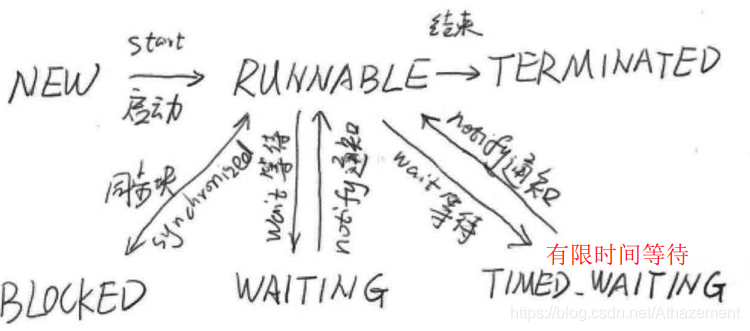 start
结束
NEW
RUNNABLE
TERMINATED
启动
同步块
synchronized
wait 等待
notify 通知
wait 等待
notify 通知
有限时间等待
BLOCKED
WAITING
TIMED_WAITING
https://blog.csdn.net/Athazement